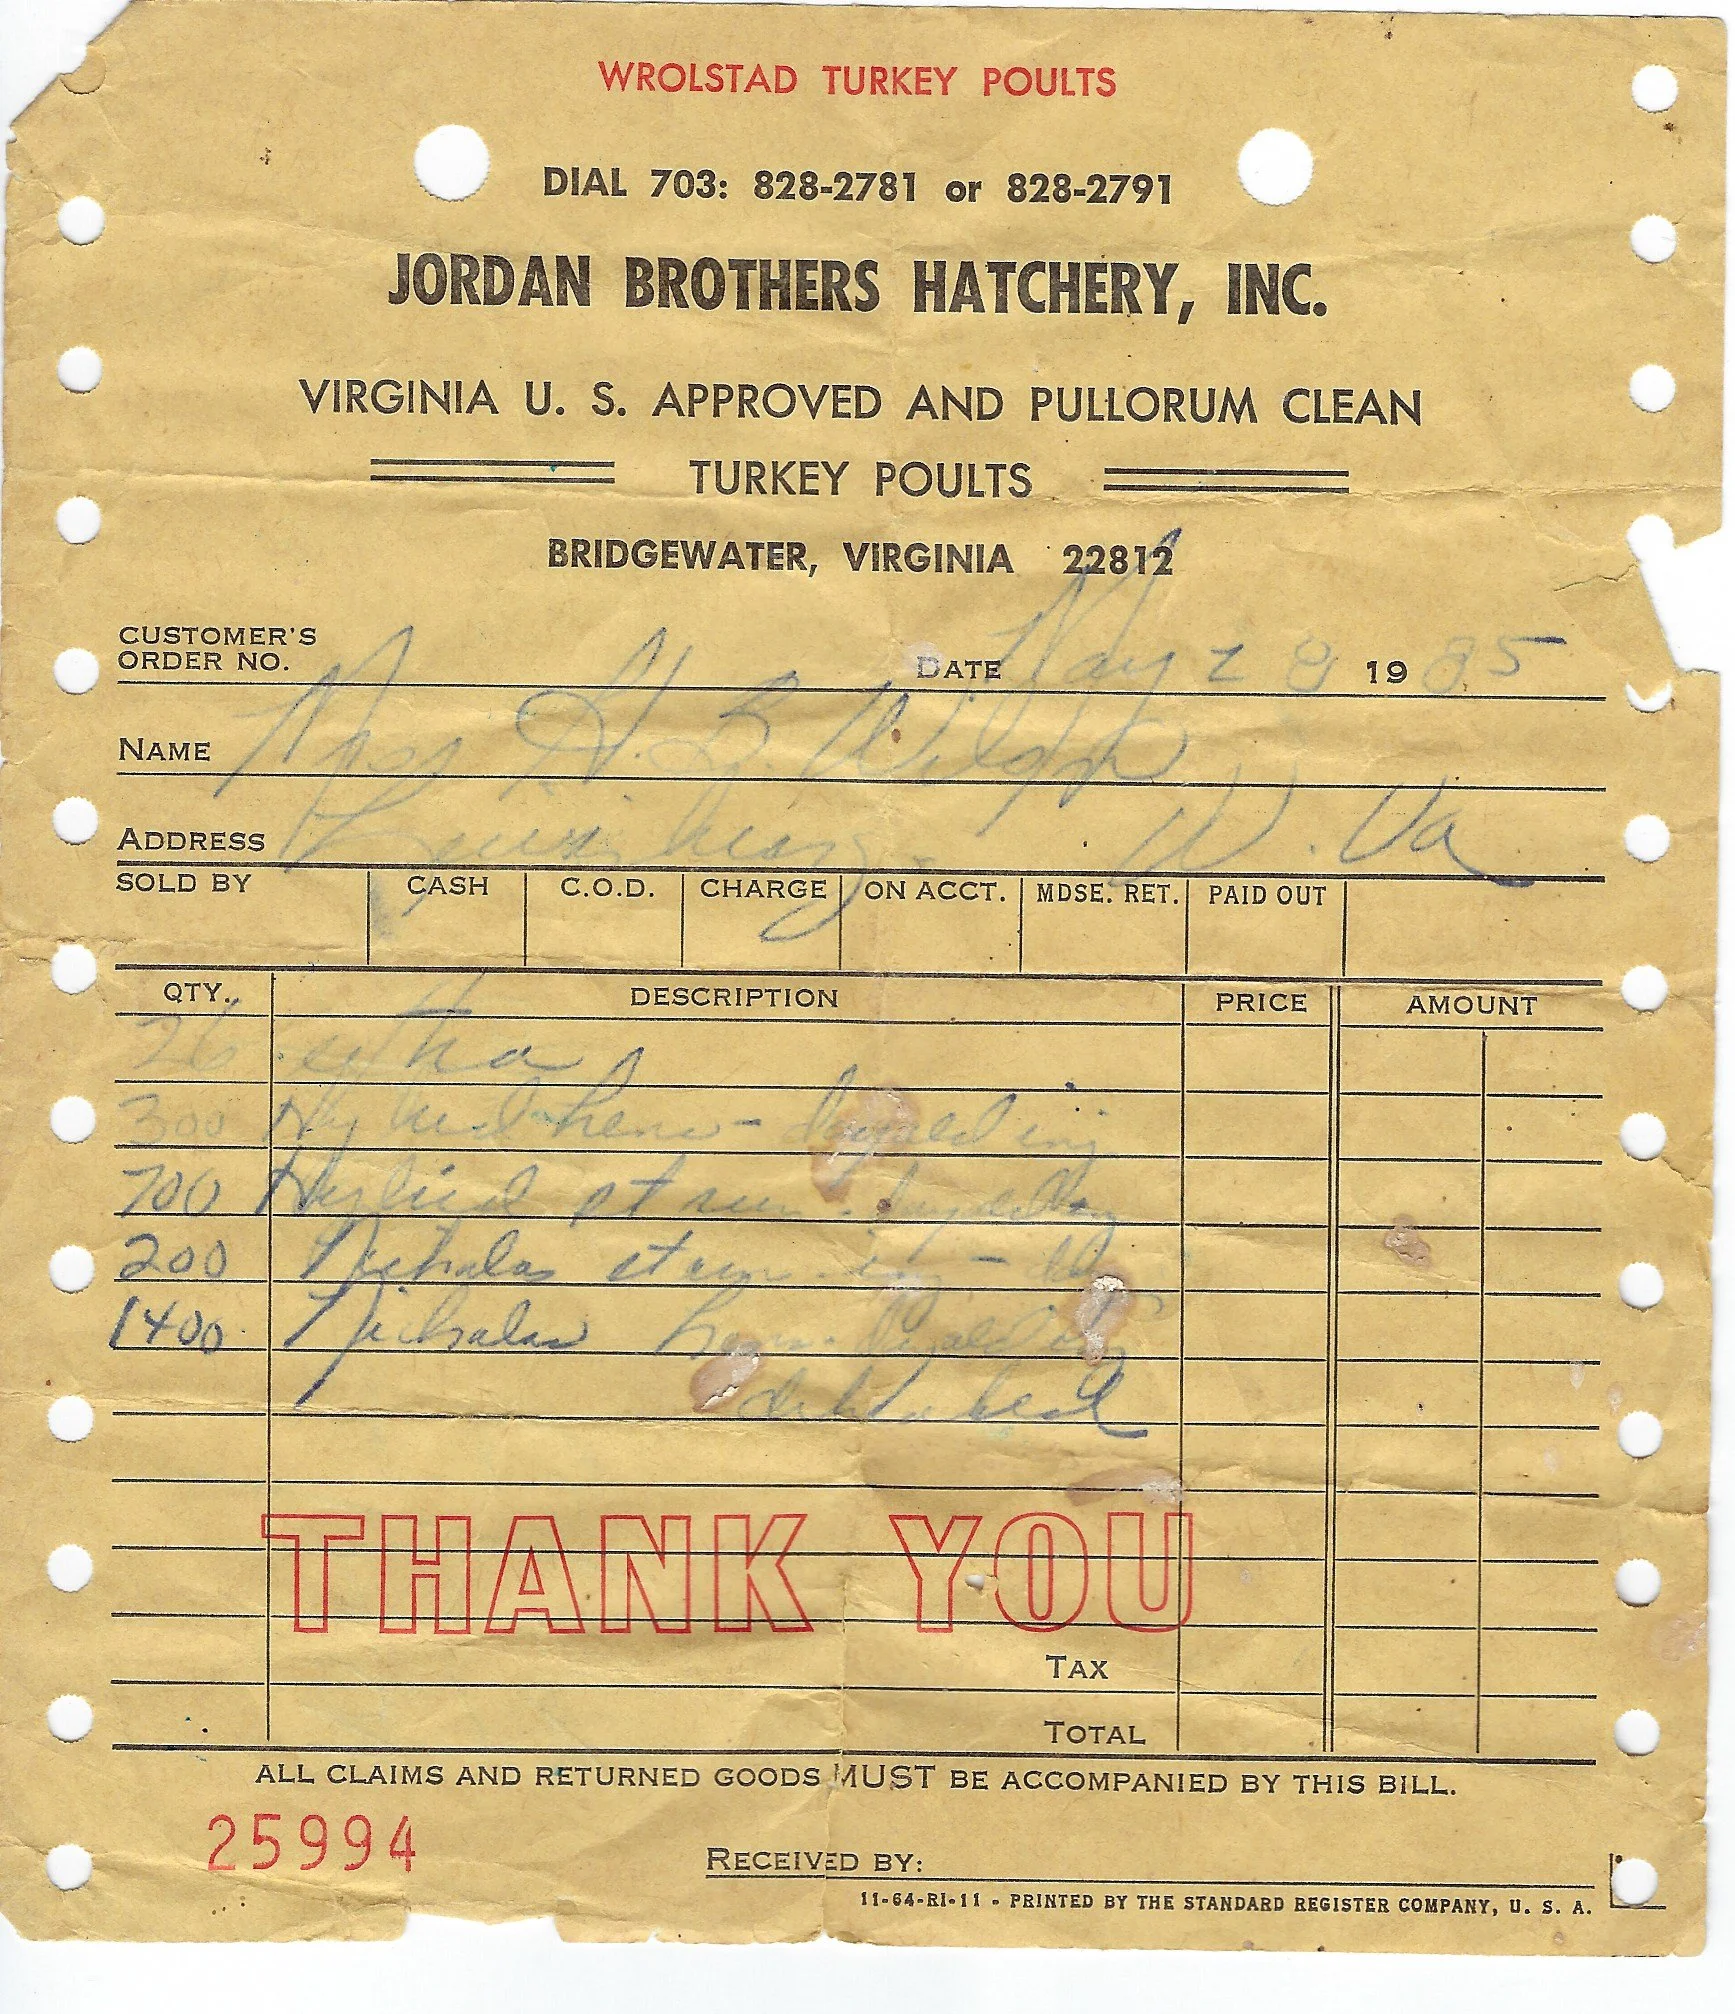 WROLSTAD TURKEY POULTS
DIAL 703: 828-2781 or 828-2791
JORDAN BROTHERS HATCHERY, INC.
VIRGINIA U. S. APPROVED AND PULLORUM CLEAN
TURKEY POULTS
BRIDGEWATER, VIRGINIA 22812
CUSTOMER'S
ORDER NO.
DATE May 28 1985
NAME H. B.
ADDRESS W. Va
SOLD BY CASH C.O.D. CHARGE ON ACCT. MDSE. RET. PAID OUT
QTY. DESCRIPTION PRICE AMOUNT
26
300 hens -
700
200 Nicholas
1400 Nicholas
THANK YOU
TAX
TOTAL
ALL CLAIMS AND RETURNED GOODS MUST BE ACCOMPANIED BY THIS BILL.
25994
RECEIVED BY:
11-64-RI-11 - PRINTED BY THE STANDARD REGISTER COMPANY, U. S. A.